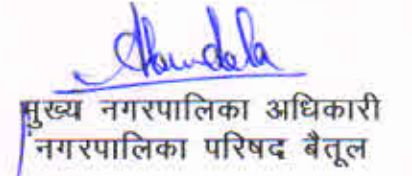 मुख्य नगरपालिका अधिकारी
नगरपालिका परिषद बैतूल